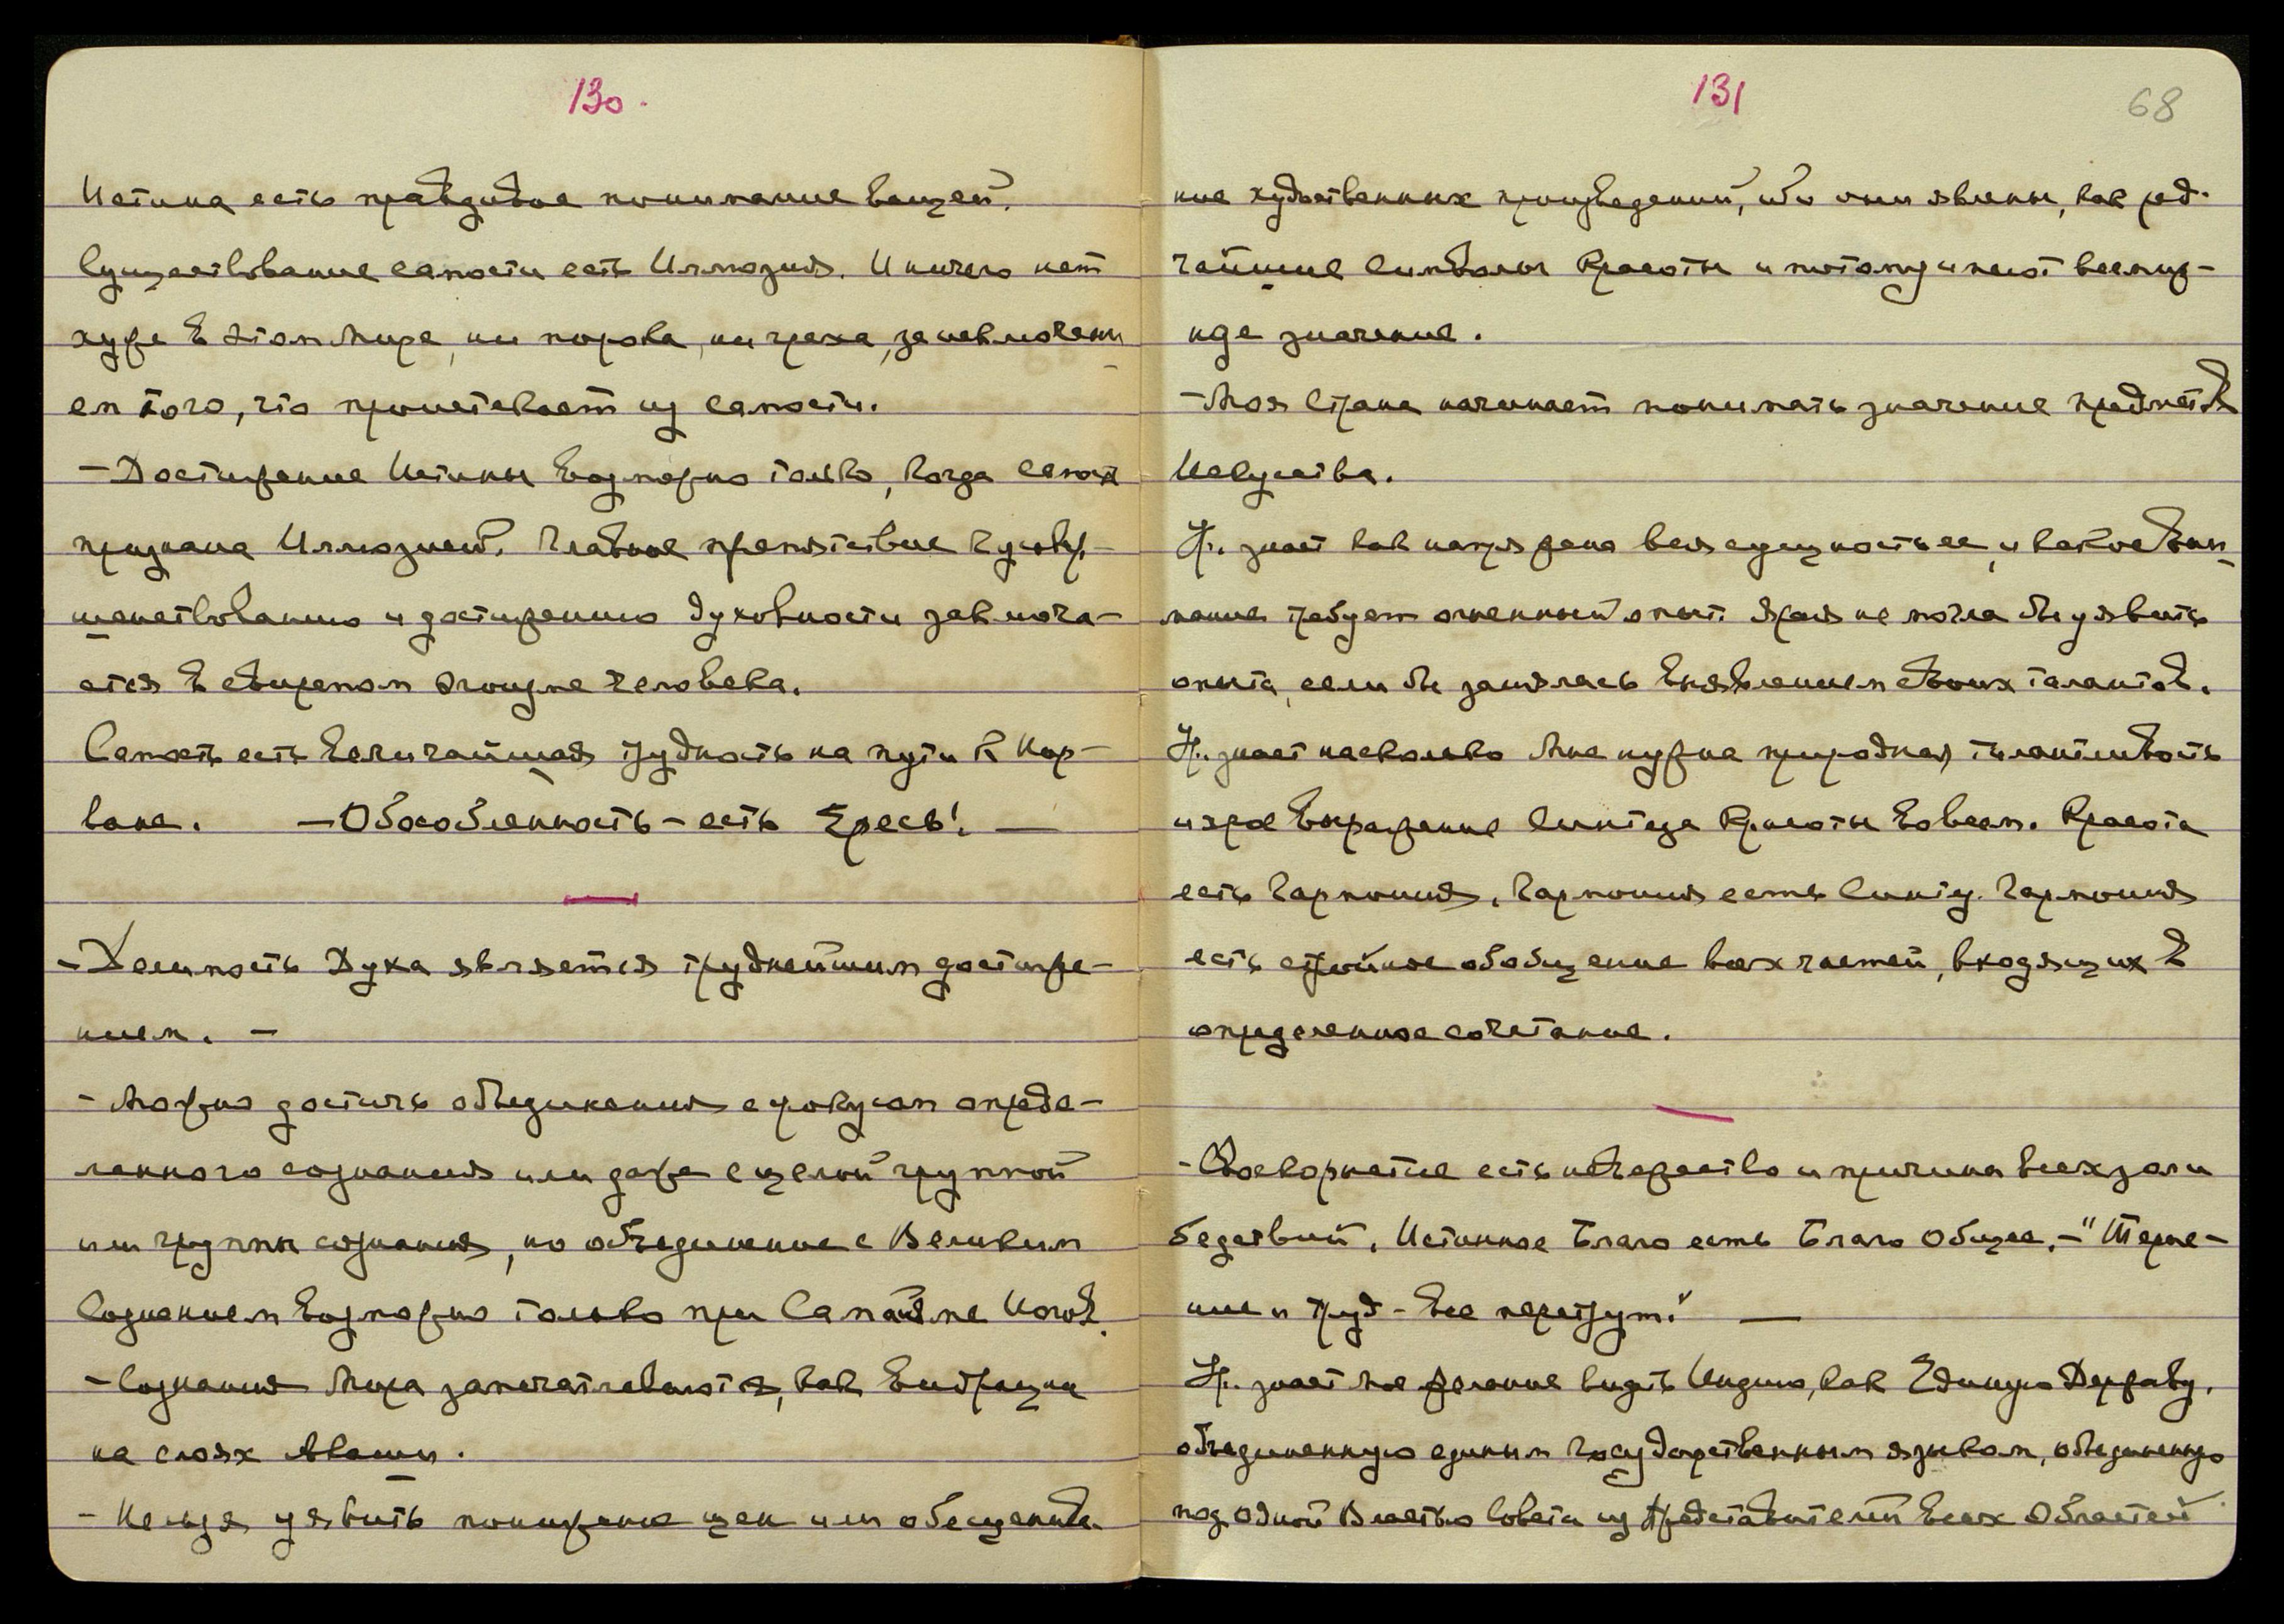 130.
Истина есть правдивое понимание вещей.
Существование самости есть Иллюзия. И ничего нет
хуже в этом Мире, ни порока, ни греха, за исключени
ем того, что проистекает из самости.
— Достижение Истины возможно только, когда самость
признана Иллюзией. Главное препятствие к усовер-
шенствованию и достижению духовности заключа-
ется в свирепом эгоизме человека.
Самость есть величайшая трудность на пути к Нир-
ване. — Обособленность – есть Ересь! —
- Цельность Духа является труднейшим достиже-
нием. —
- Можно достичь объединения с фокусом опреде-
ленного сознания или даже с целой группой
или группы сознания, но объединение с Великим
Сознанием возможно только при Самадхи Йогов.
- Сознания Мира запечатлеваются, как вибрации
на слоях Акаши.
- Нельзя уявить понижение цен или обесценива-
131
68
ние художественных произведений, ибо они явлены, как ред-
чайшие символы Красоты и потому имеют всемир-
ное значение.
- Моя Страна начинает понимать значение предметов
Искусства.
Ур. знает как напряжена вся сущность ее, и какое вни
мание требует огненный опыт. Яро не могла бы уявить
опыта, если бы занялась выявлением своих талантов.
Ур. знает насколько Мне нужна природная талантливость
и ярое выражение синтеза Красоты во всем. Красота
есть Гармония, Гармония есть Синтез. Гармония
есть стройное обобщение всех частей, входящих в
определенное сочетание.
- Своекорыстие есть невежество и причина всех зол и
бедствий. Истинное Благо есть Благо Общее. – "Терпе-
ние и труд – все перетрут." —
Ур. знает Мое желание видеть Индию, как Единую Державу,
объединенную единым Государственным языком, объединенную
под одной Властью Совета из Представителей всех Областей